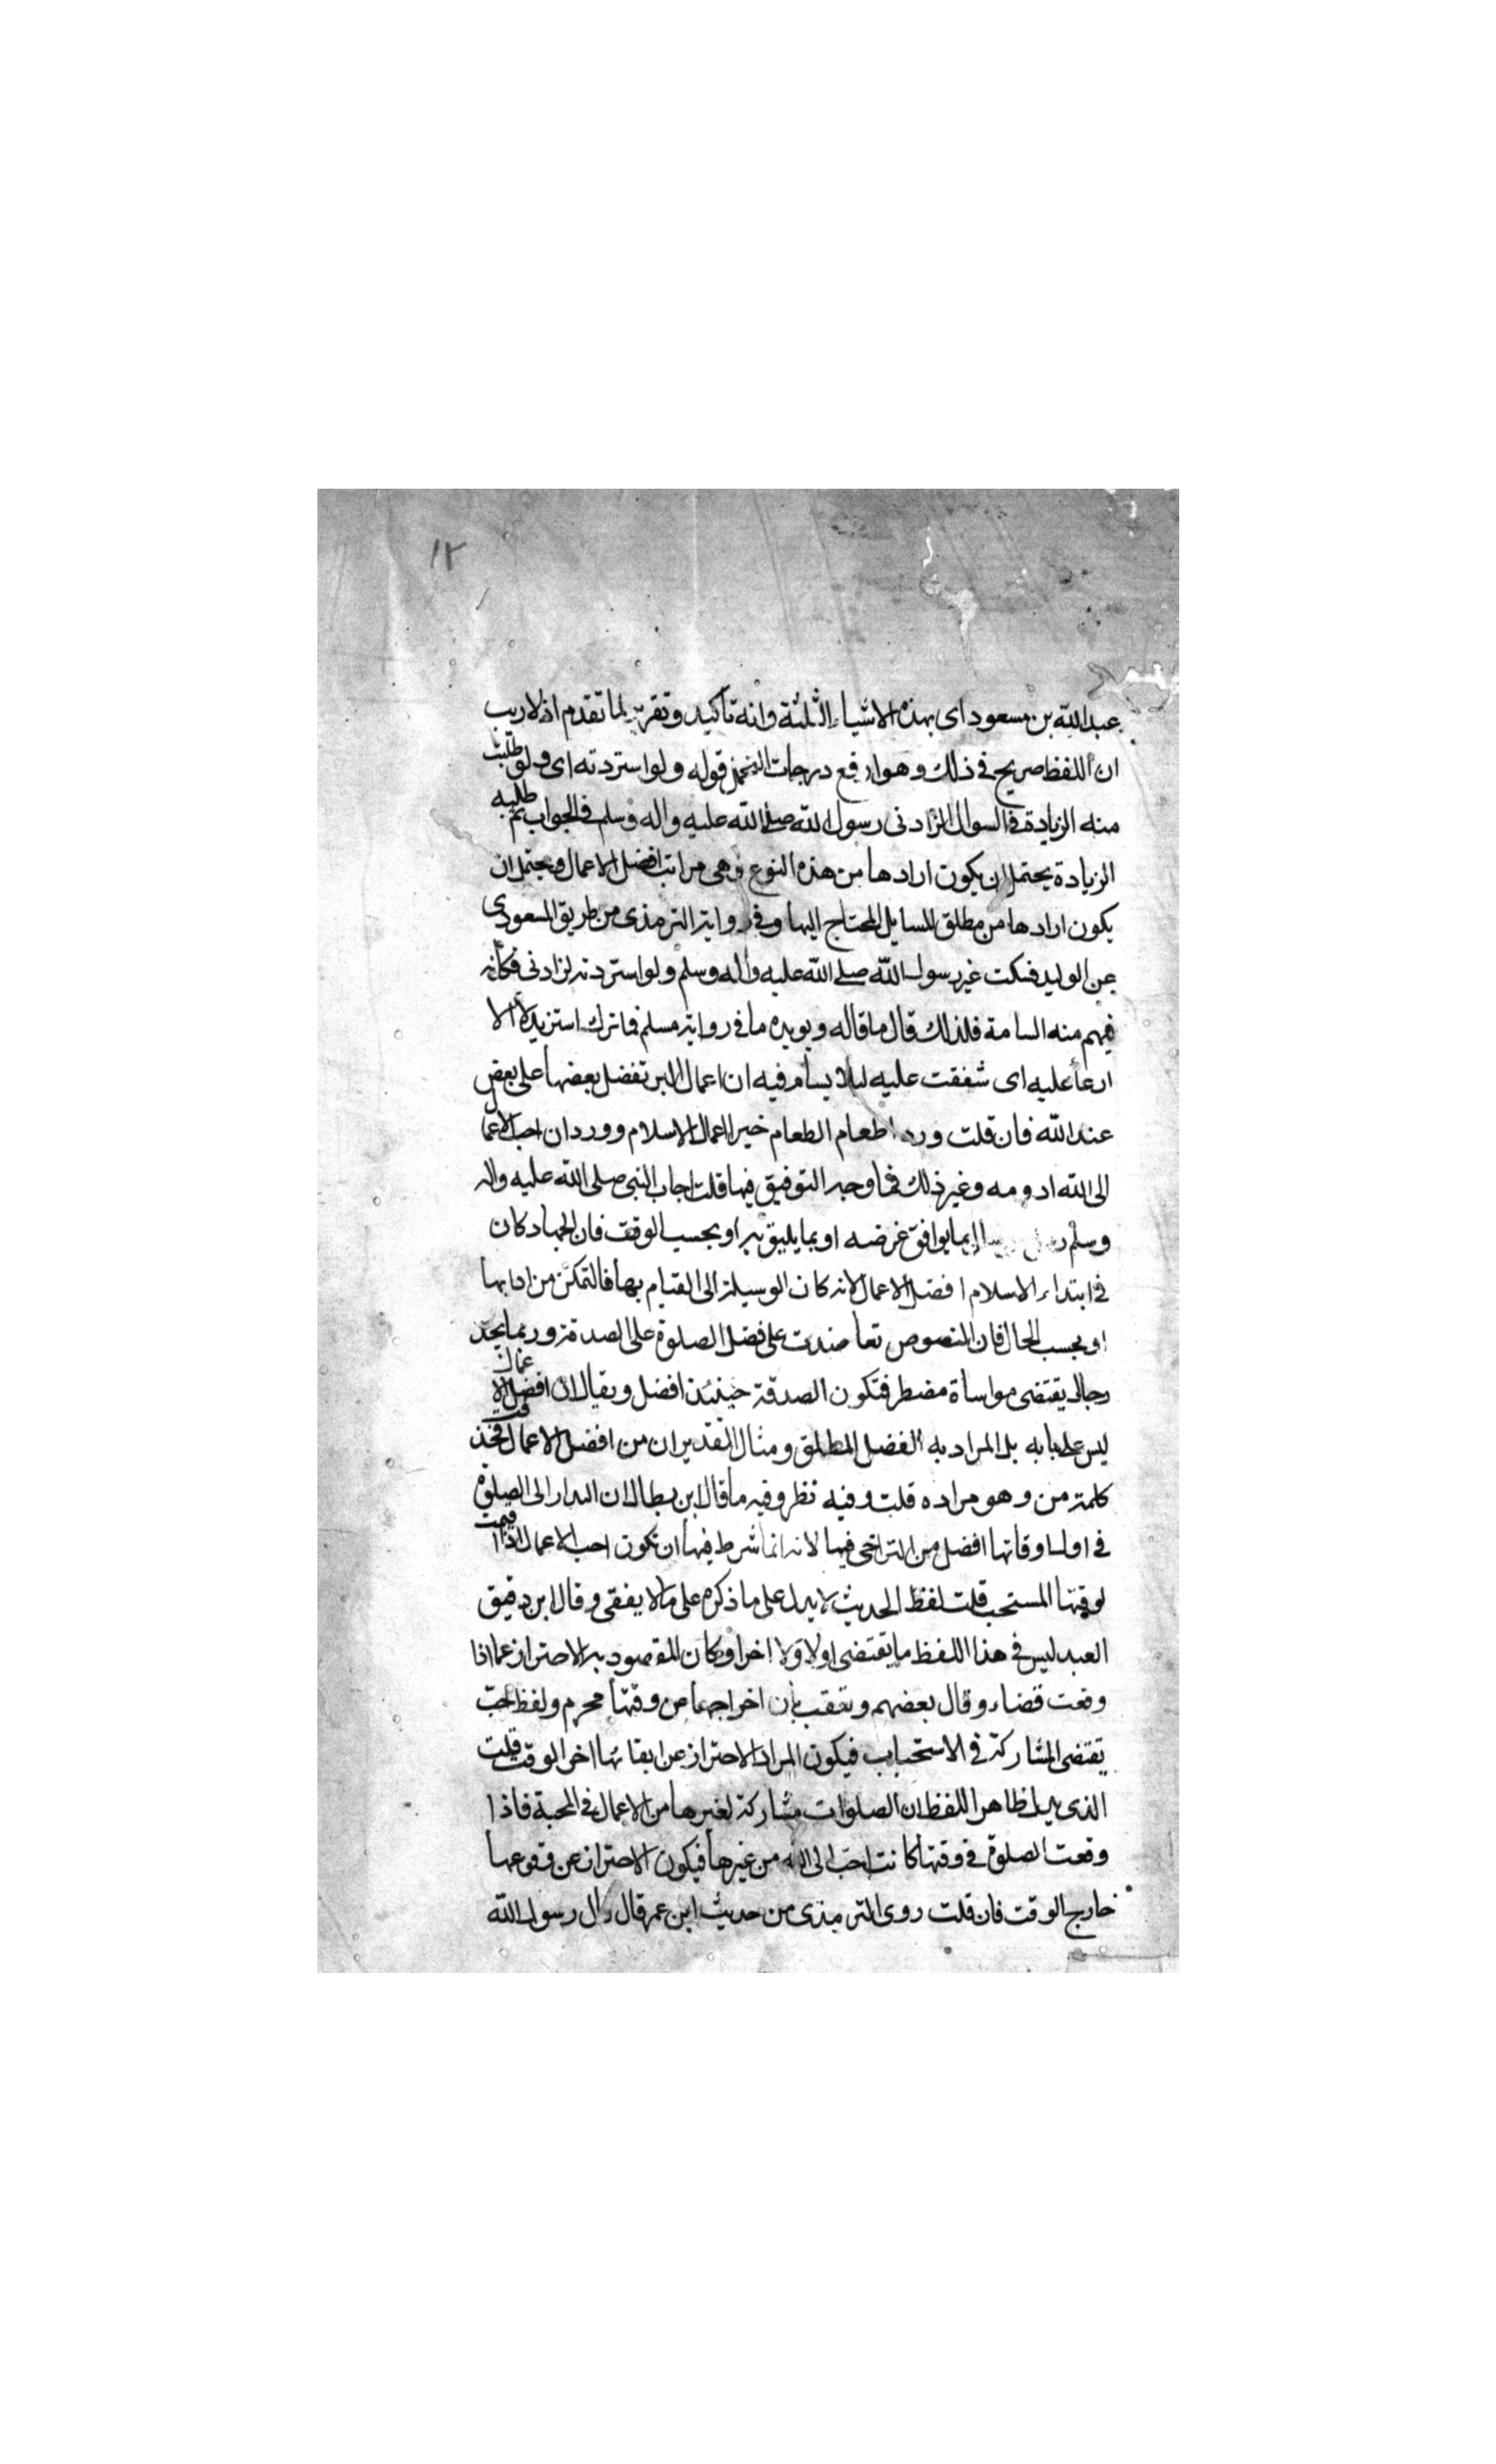 ١٢
عبدالله بن مسعود اى بهذه الاشياء الثلثة وانه تاكيد وتقرير لما تقدم اذ لا ريب
ان اللفظ صريح فى ذلك وهو ارفع درجات التحمل قوله ولو استزدته اى ولو طلبت
منه الزيادة فى السوال لزادنى رسول الله صلى الله عليه واله وسلم فى الجواب ثم طلبه
الزيادة يحتمل ان يكون ارادها من هذه النوع وهى مراتب افضل الاعمال ويحتمل ان
يكون ارادها من مطلق المسايل المحتاج اليها وفى رواية الترمذى من طريق المسعودى
عن الوليد فسكت عنى رسول الله صلى الله عليه واله وسلم ولو استزدته لزادنى فكانه
فهم منه السامة فلذلك قال ما قاله ويويده ما فى رواية مسلم فما تركت استزيده الا
ارعا عليه اى شفقت عليه ليلا يسام فيه ان اعمال البر تفضل بعضها على بعض
عند الله فان قلت ورد اطعام الطعام خير اعمال الاسلام وورد ان احب الاعمال
الى الله ادومه وغير ذلك فما وجه التوفيق فيها قلت اجاب النبى صلى الله عليه واله
وسلم بما يوافق غرضه او بما يليق به او بحسب الوقت فان الجهاد كان
فى ابتداء الاسلام افضل الاعمال لانه كان الوسيلة الى القيام بها فالتمكن من ادايها
او بحسب الحال فان النصوص تعاضدت على فضل الصلوة على الصدقة وربما يجد
رجال يقتضى مواساة مضطر فتكون الصدقة حينئذ افضل ويقال ان افضل الاعمال
ليس على بابه بل المراد به الفضل المطلق ومثال التقدير ان من افضل الاعمال فحذفت
كلمة من وهو مراده قلت وفيه نظر وفيه ما قال ابن بطال ان البدار الى الصلوة
فى اول اوقاتها افضل من التراخى فيها لانه انما شرط فيها ان تكون احب الاعمال اذا اقيمت
لوقتها المستحب قلت لفظ الحديث لا يدل على ما ذكره على ما لا يفقى وقال ابن دقيق
العبد ليس فى هذا اللفظ ما يقتضى اولا ولا اخرا وكان المقصود به الاحتراز عما اذا
وقعت قضاء وقال بعضهم وتعقب بان اخراجها عن وقتها محرم ولفظ احب
يقتضى المشاركة فى الاستحباب فيكون المراد الاحتراز عن ايقاعها اخر الوقت قلت
الذى يدل ظاهر اللفظ ان الصلوات مشاركة لغيرها من الاعمال فى المحبة فاذا
وقعت الصلوة فى وقتها كانت احب الى الله من غيرها فيكون الاحتراز عن وقوعها
خارج الوقت فان قلت روى الترمذى من حديث ابن عمر قال قال رسول الله